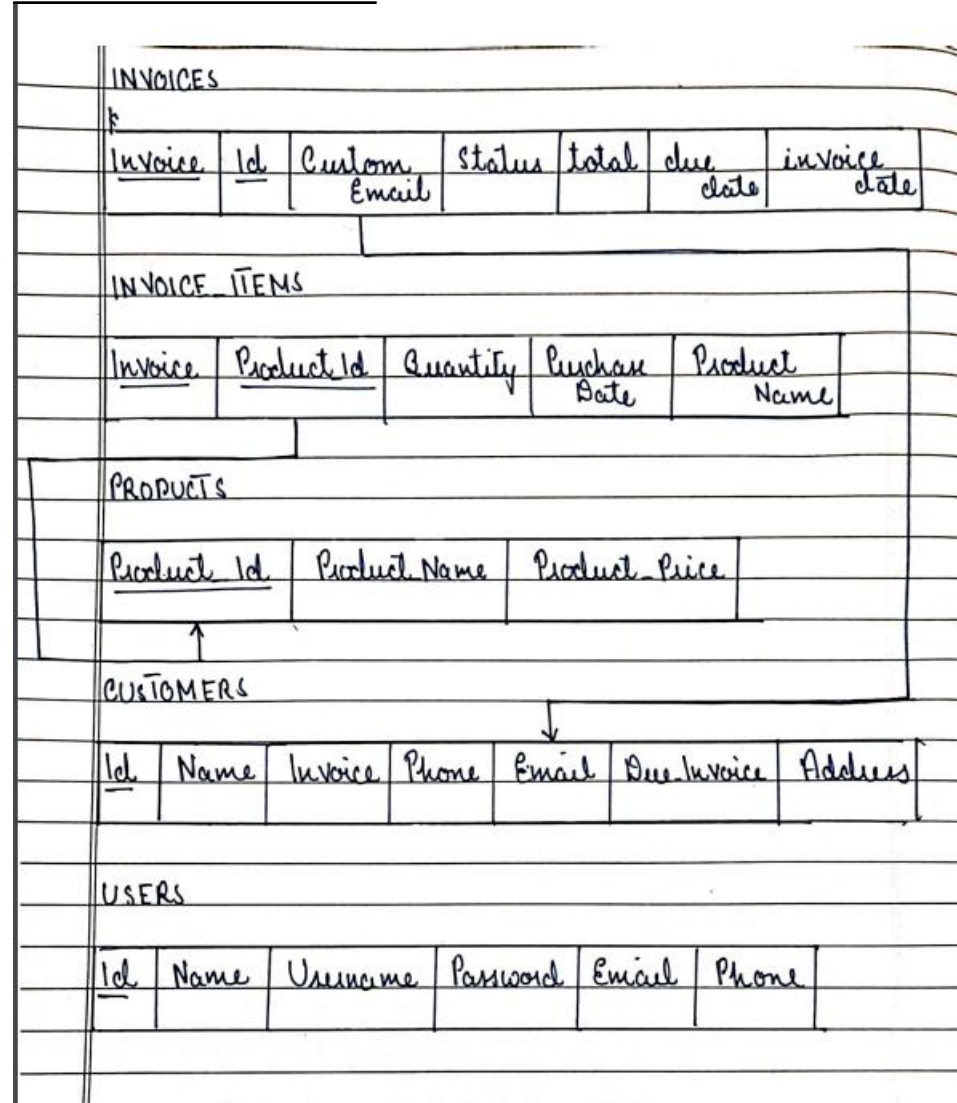 INVOICES
Invoice Id Custom Email Status total due date invoice date
INVOICE_ITEMS
Invoice Product_Id Quantity Purchase Date Product Name
PRODUCTS
Product_Id Product_Name Product_Price
CUSTOMERS
Id Name Invoice Phone Email Due_Invoice Address
USERS
Id Name Username Password Email Phone